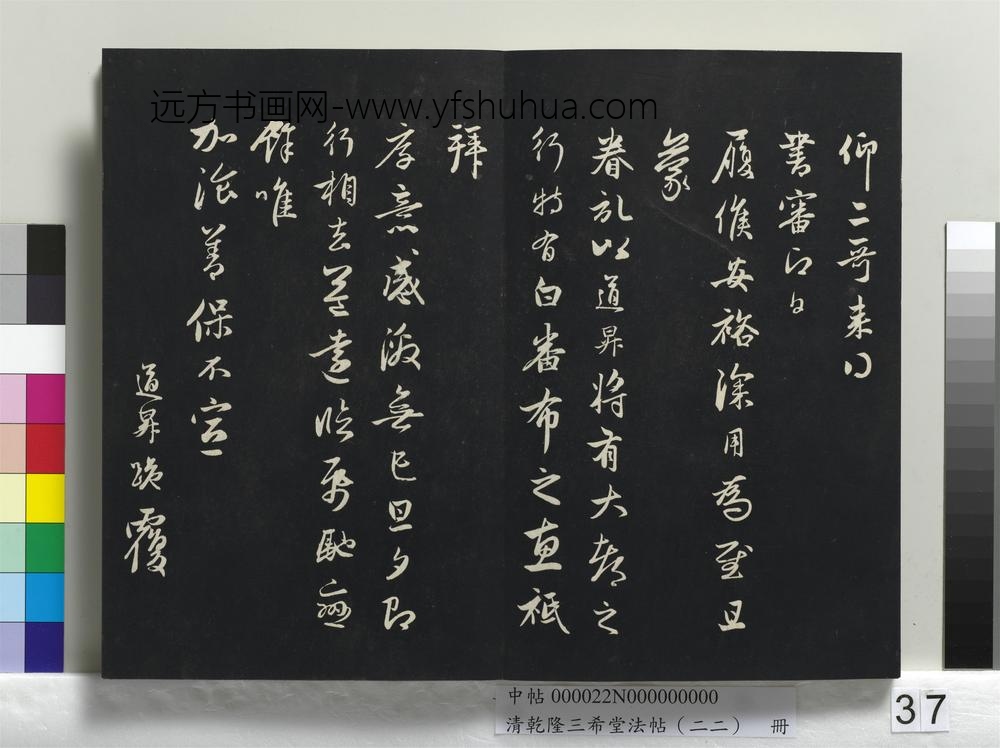 仰二哥来得
書審即日
履候安裕深用為慰且
蒙
眷記以道昇將有大都之
行特有白番布之惠祗
拜
厚意感激無已旦夕即
行相去益遠臨帋馳
餘唯
加湌善保不宣
道昇跪覆
远方书画网-www.yfshuhua.com
中帖 000022N000000000
清乾隆三希堂法帖（二二） 冊
37